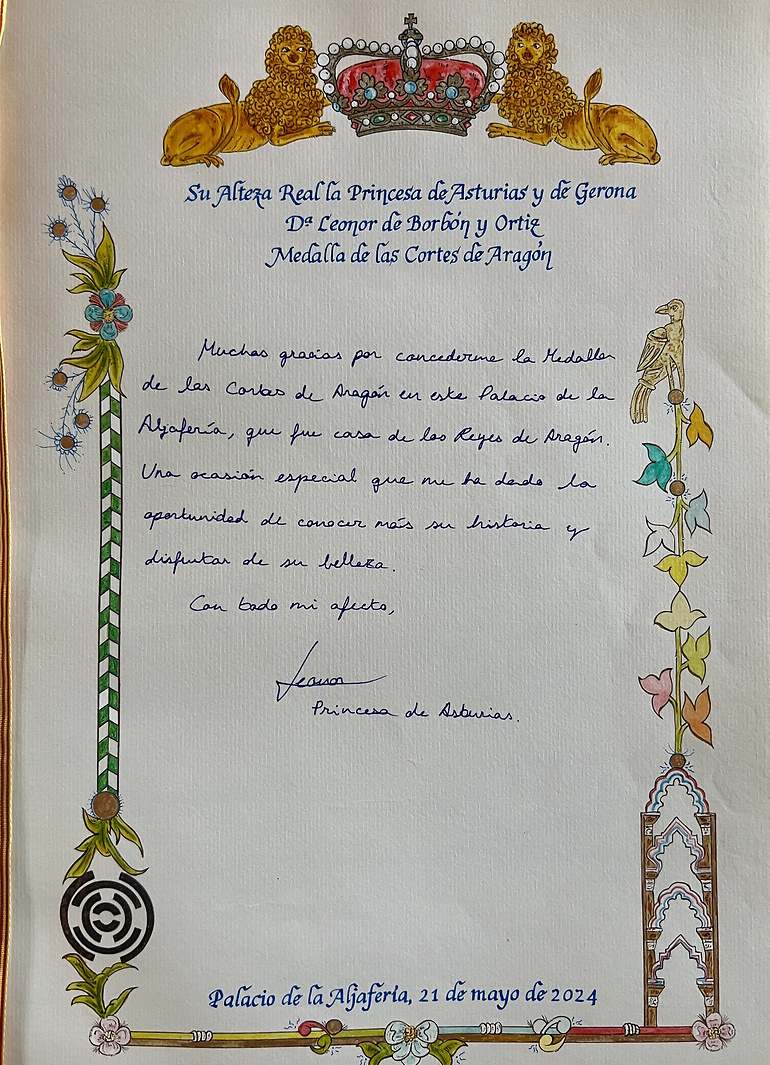 Su Alteza Real la Princesa de Asturias y de Gerona
Dª Leonor de Borbón y Ortiz
Medalla de las Cortes de Aragón
Muchas gracias por concederme la Medalla
de las Cortes de Aragón en este Palacio de la
Aljafería, que fue casa de los Reyes de Aragón.
Una ocasión especial que me ha dado la
oportunidad de conocer más su historia y
disfrutar de su belleza.
Con todo mi afecto,
Leonor
Princesa de Asturias.
Palacio de la Aljafería, 21 de mayo de 2024